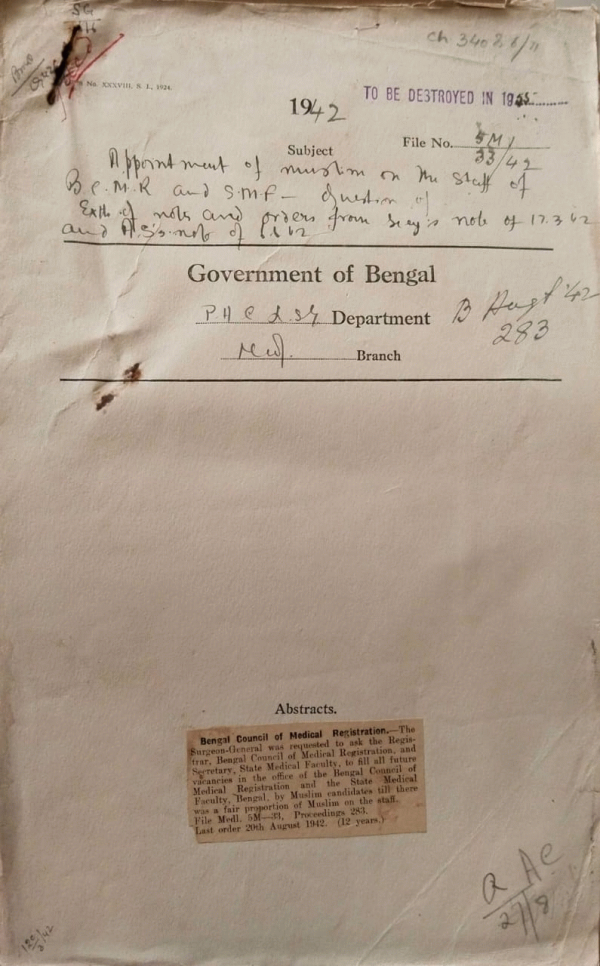 ch 3402
No. XXXVIII, S. I., 1924.
1942
TO BE DESTROYED IN 1955
File No. 5M/33/42
Subject
Appointment of muslim on the staff of
B.C.M.R and S.M.F — Question of
Extts of notes and orders from Secy's note of 17.3.42
and note of
Government of Bengal
P H & L.S.G Department
B Augt '42
283
Med. Branch
Abstracts.
Bengal Council of Medical Registration.—The
Surgeon-General was requested to ask the Regis-
trar, Bengal Council of Medical Registration, and
Secretary, State Medical Faculty, to fill all future
vacancies in the office of the Bengal Council of
Medical Registration and the State Medical
Faculty, Bengal, by Muslim candidates till there
was a fair proportion of Muslim on the staff.
File Medl. 5M—33, Proceedings 283.
Last order 20th August 1942. (12 years.)
27/8